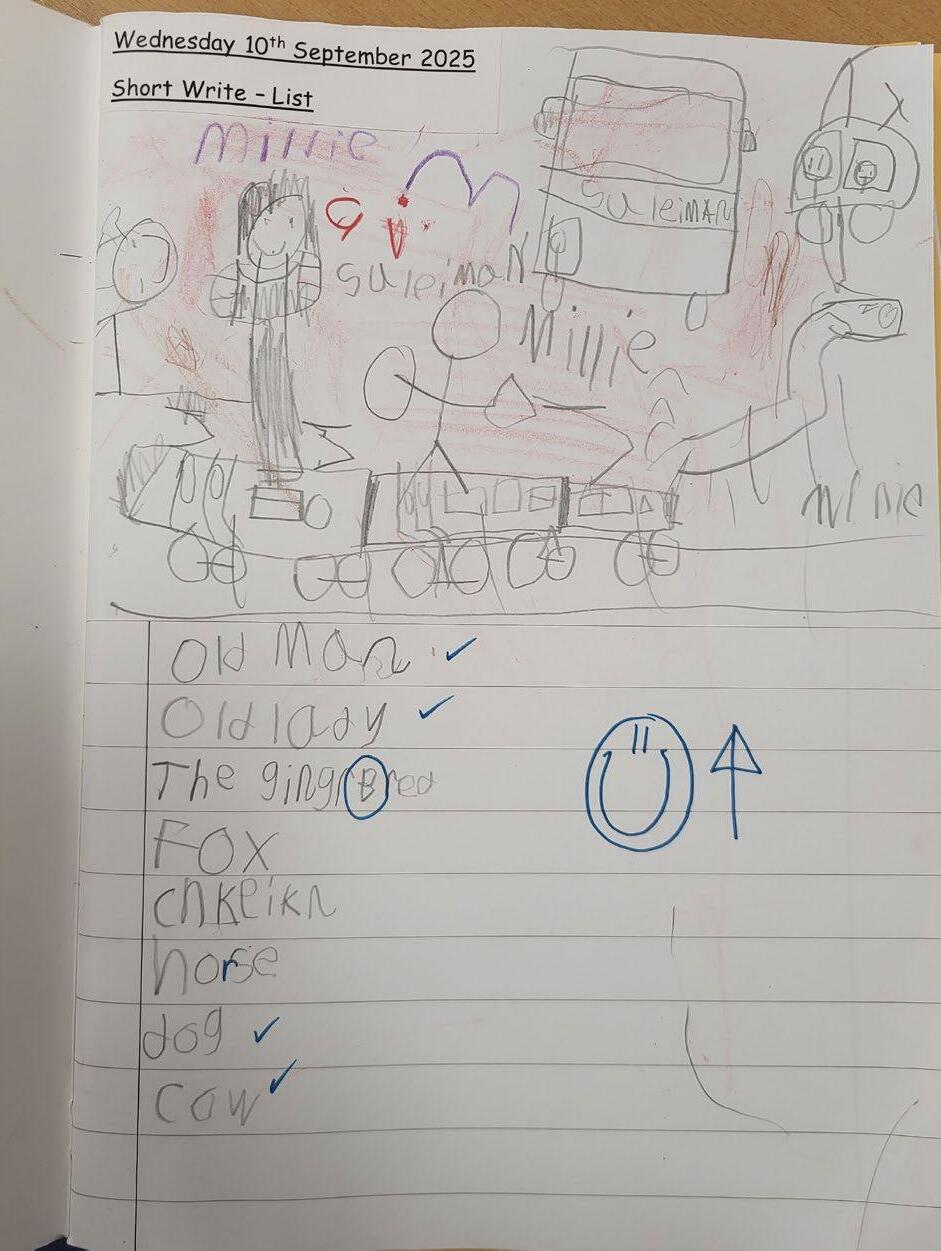 Wednesday 10th September 2025
Short Write – List
Millie
SuleiMAN
Suleiman
Millie
Old Man
Old lady
The gingrBred
Fox
chkeikn
horse
dog
cow